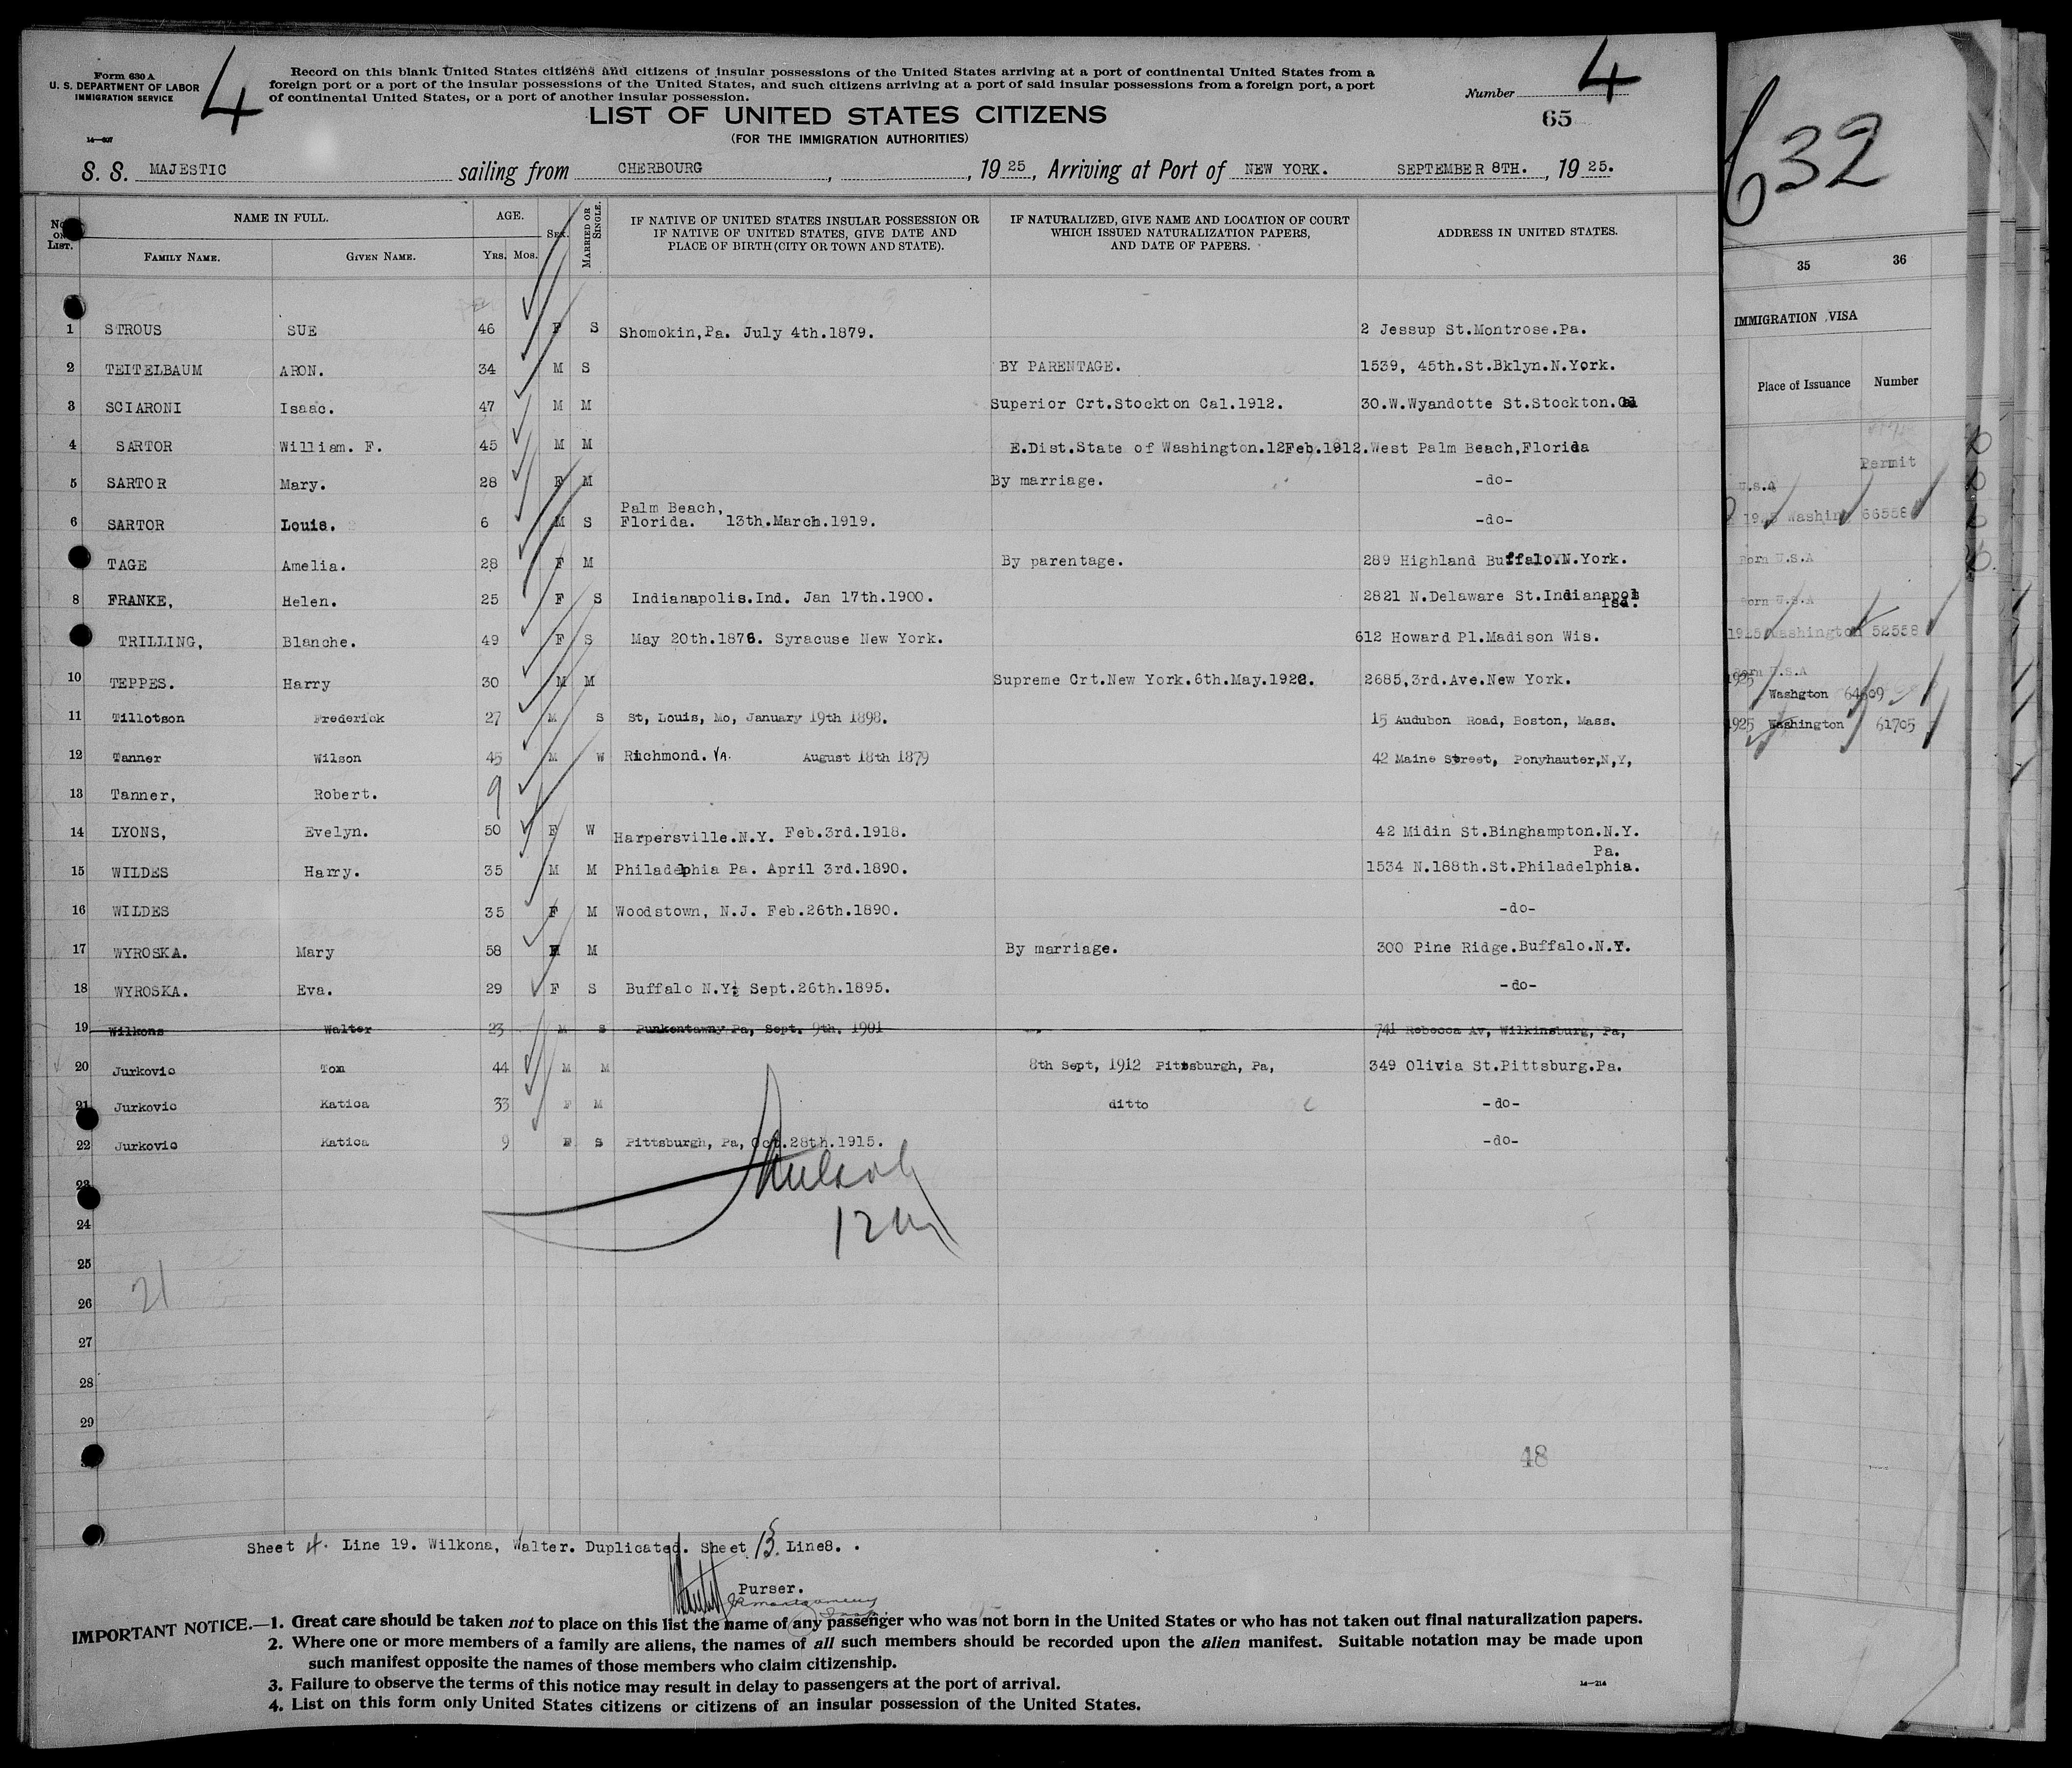 Form 630 A
U. S. DEPARTMENT OF LABOR
IMMIGRATION SERVICE
14—607
4
Record on this blank United States citizens and citizens of insular possessions of the United States arriving at a port of continental United States from a
foreign port or a port of the insular possessions of the United States, and such citizens arriving at a port of said insular possessions from a foreign port, a port
of continental United States, or a port of another insular possession.
Number 4
65
LIST OF UNITED STATES CITIZENS
(FOR THE IMMIGRATION AUTHORITIES)
S. S. MAJESTIC sailing from CHERBOURG , , 19 25, Arriving at Port of NEW YORK. SEPTEMBER 8TH. , 19 25.
No. on List. NAME IN FULL. AGE. Sex. MARRIED OR SINGLE. IF NATIVE OF UNITED STATES INSULAR POSSESSION OR IF NATIVE OF UNITED STATES, GIVE DATE AND PLACE OF BIRTH (CITY OR TOWN AND STATE). IF NATURALIZED, GIVE NAME AND LOCATION OF COURT WHICH ISSUED NATURALIZATION PAPERS, AND DATE OF PAPERS. ADDRESS IN UNITED STATES.
FAMILY NAME. GIVEN NAME. Yrs. Mos.
1 STROUS SUE 46 F S Shomokin,Pa. July 4th.1879. 2 Jessup St.Montrose.Pa.
2 TEITELBAUM ARON. 34 M S BY PARENTAGE. 1539, 45th.St.Bklyn.N.York.
3 SCIARONI Isaac. 47 M M Superior Crt.Stockton Cal.1912. 30.W.Wyandotte St.Stockton.Cal
4 SARTOR William. F. 45 M M E.Dist.State of Washington.12Feb.1912. West Palm Beach,Florida
5 SARTOR Mary. 28 F M By marriage. -do-
6 SARTOR Louis. 6 M S Palm Beach, Florida. 13th.March.1919. -do-
TAGE Amelia. 28 F M By parentage. 289 Highland Buffalo.N.York.
8 FRANKE, Helen. 25 F S Indianapolis.Ind. Jan 17th.1900. 2821 N.Delaware St.Indianapols Ind.
TRILLING, Blanche. 49 F S May 20th.1876. Syracuse New York. 612 Howard Pl.Madison Wis.
10 TEPPES. Harry 30 M M Supreme Crt.New York.6th.May.1922. 2685,3rd.Ave.New York.
11 Tillotson Frederick 27 M S St, Louis, Mo, January 19th 1898. 15 Audubon Road, Boston, Mass.
12 Tanner Wilson 45 M W Richmond. VA. August 18th 1879 42 Maine Street, Ponyhauter,N,Y,
13 Tanner, Robert. 9
14 LYONS, Evelyn. 50 F W Harpersville.N.Y. Feb.3rd.1918. 42 Midin St.Binghampton.N.Y.
15 WILDES Harry. 35 M M Philadelphia Pa. April 3rd.1890. 1534 N.188th.St.Philadelphia. Pa.
16 WILDES 35 F M Woodstown, N.J. Feb.26th.1890. -do-
17 WYROSKA. Mary 58 F M By marriage. 300 Pine Ridge.Buffalo.N.Y.
18 WYROSKA. Eva. 29 F S Buffalo N.Y. Sept.26th.1895. -do-
19 Wilkons Walter 23 M S Punkentawny Pa, Sept. 9th. 1901 741 Rebecca Av, Wilkinsburg, Pa,
20 Jurkovic Tom 44 M M 8th Sept, 1912 Pittsburgh, Pa, 349 Olivia St.Pittsburg.Pa.
21 Jurkovic Katica 33 F M ditto -do-
22 Jurkovic Katica 9 F S Pittsburgh, Pa, Oct.28th.1915. -do-
23
24
25
26
27
28
29
21
48
Sheet 4. Line 19. Wilkona, Walter. Duplicated. Sheet 13. Line8. .
Purser.
IMPORTANT NOTICE.—1. Great care should be taken not to place on this list the name of any passenger who was not born in the United States or who has not taken out final naturalization papers.
2. Where one or more members of a family are aliens, the names of all such members should be recorded upon the alien manifest. Suitable notation may be made upon
such manifest opposite the names of those members who claim citizenship.
3. Failure to observe the terms of this notice may result in delay to passengers at the port of arrival.
4. List on this form only United States citizens or citizens of an insular possession of the United States.
14—214
632
35 36
IMMIGRATION VISA
Place of Issuance Number
Permit
U.S.A
1925 Washin 56558
Born U.S.A
Born U.S.A
1925 Washington 52558
Born U.S.A
1925 Washgton 64609
1925 Washington 61705